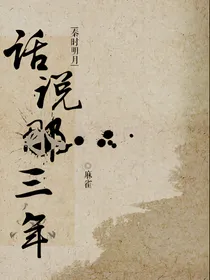 [秦时明月]
话说那三年
◎麻雀